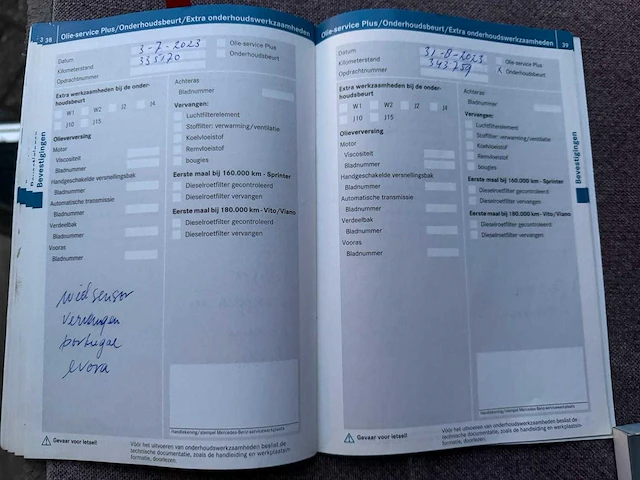 38 Olie-service Plus/Onderhoudsbeurt/Extra onderhoudswerkzaamheden
Datum 3-7-2023 Olie-service Plus
Kilometerstand 335170 Onderhoudsbeurt
Opdrachtnummer
Extra werkzaamheden bij de onder-
houdsbeurt
W1 W2 J2 J4
J10 J15
Olieverversing
Motor
Viscositeit
Bladnummer
Handgeschakelde versnellingsbak
Bladnummer
Automatische transmissie
Bladnummer
Verdeelbak
Bladnummer
Vooras
Bladnummer
Achteras
Bladnummer
Vervangen:
Luchtfilterelement
Stoffilter: verwarming/ventilatie
Koelvloeistof
Remvloeistof
bougies
Eerste maal bij 160.000 km - Sprinter
Dieselroetfilter gecontroleerd
Dieselroetfilter vervangen
Eerste maal bij 180.000 km - Vito/Viano
Dieselroetfilter gecontroleerd
Dieselroetfilter vervangen
wielsensor
vervangen
portugal
evora
Handtekening/stempel Mercedes-Benz-servicewerkplaats
Gevaar voor letsel!
Vóór het uitvoeren van onderhoudswerkzaamheden beslist de
technische documentatie, zoals de handleiding en werkplaatsin-
formatie, doorlezen.
Bevestigingen
Olie-service Plus/Onderhoudsbeurt/Extra onderhoudswerkzaamheden 39
Datum 31-8-2023 Olie-service Plus
Kilometerstand 343759 x Onderhoudsbeurt
Opdrachtnummer
Extra werkzaamheden bij de onder-
houdsbeurt
W1 W2 J2 J4
J10 J15
Olieverversing
Motor
Viscositeit
Bladnummer
Handgeschakelde versnellingsbak
Bladnummer
Automatische transmissie
Bladnummer
Verdeelbak
Bladnummer
Vooras
Bladnummer
Achteras
Bladnummer
Vervangen:
Luchtfilterelement
Stoffilter: verwarming/ventilatie
Koelvloeistof
Remvloeistof
bougies
Eerste maal bij 160.000 km - Sprinter
Dieselroetfilter gecontroleerd
Dieselroetfilter vervangen
Eerste maal bij 180.000 km - Vito/Viano
Dieselroetfilter gecontroleerd
Dieselroetfilter vervangen
Handtekening/stempel Mercedes-Benz-servicewerkplaats
Gevaar voor letsel!
Vóór het uitvoeren van onderhoudswerkzaamheden beslist de
technische documentatie, zoals de handleiding en werkplaatsin-
formatie, doorlezen.
Bevestigingen